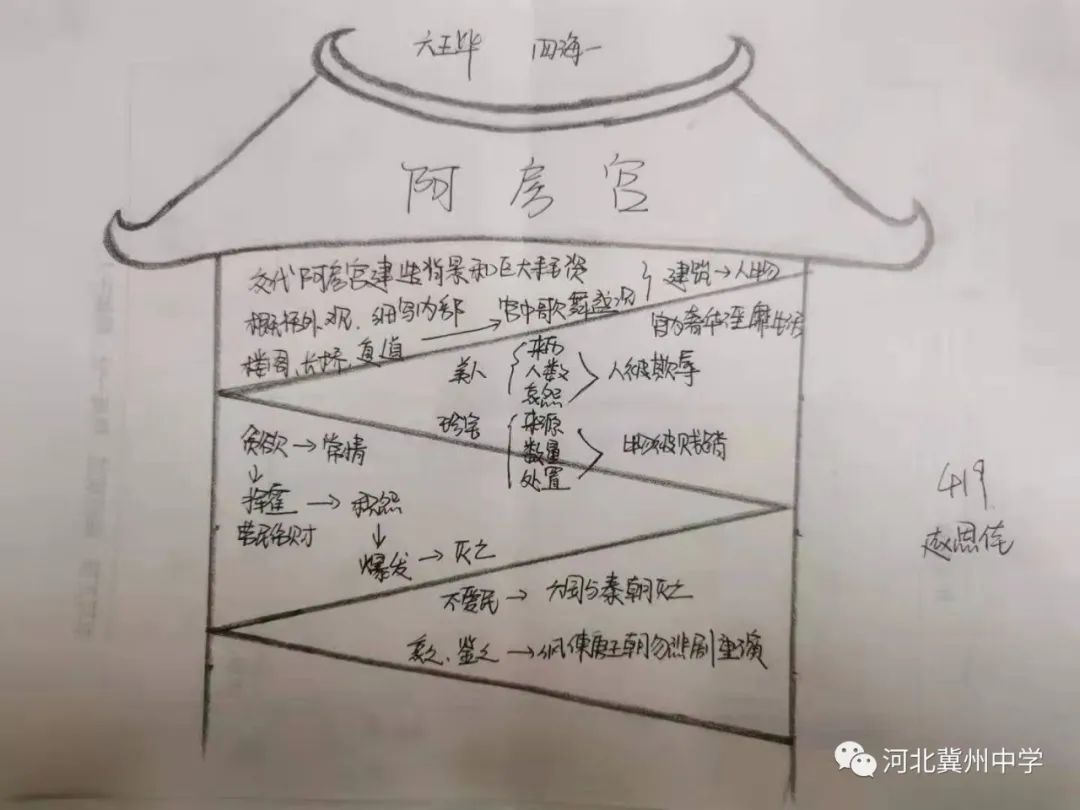 六王毕 四海一
阿房宫
交代阿房宫建造背景和巨大耗资
概括外观、细写内部
楼阁、长桥、复道 → 宫中歌舞盛况 } 建筑→人物
官方奢华淫靡生活
美人 { 来历 人数 哀怨 } 人被欺辱
珍宝 { 来源 数量 处置 } 物被贱销
贪欲→常情
↓
挥霍→积怨
害民伤财
↓
爆发→灭亡
不爱民→六国与秦朝灭亡
哀之、鉴之→讽谏唐王朝勿悲剧重演
419
赵思佳
河北冀州中学